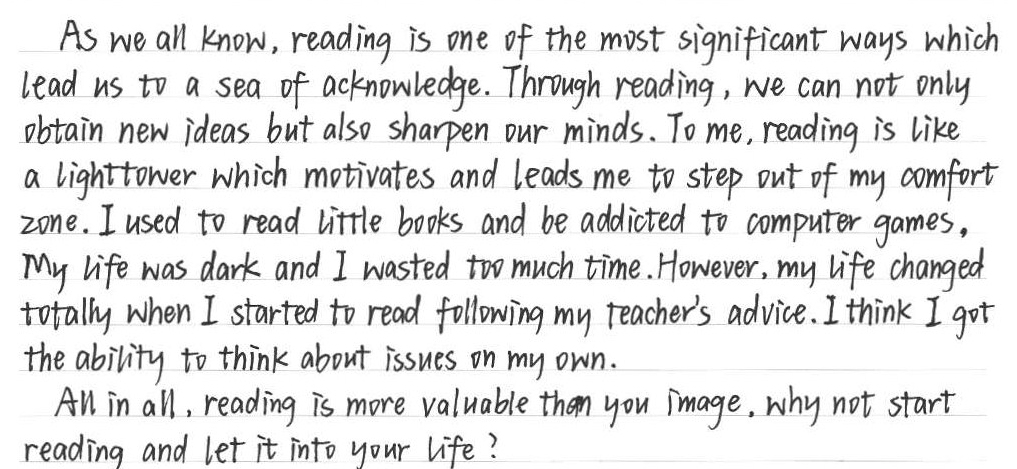 As we all know, reading is one of the most significant ways which
lead us to a sea of acknowledge. Through reading, we can not only
obtain new ideas but also sharpen our minds. To me, reading is like
a lighttower which motivates and leads me to step out of my comfort
zone. I used to read little books and be addicted to computer games,
My life was dark and I wasted too much time. However, my life changed
totally when I started to read following my teacher's advice. I think I got
the ability to think about issues on my own.
All in all, reading is more valuable than you image, why not start
reading and let it into your life?